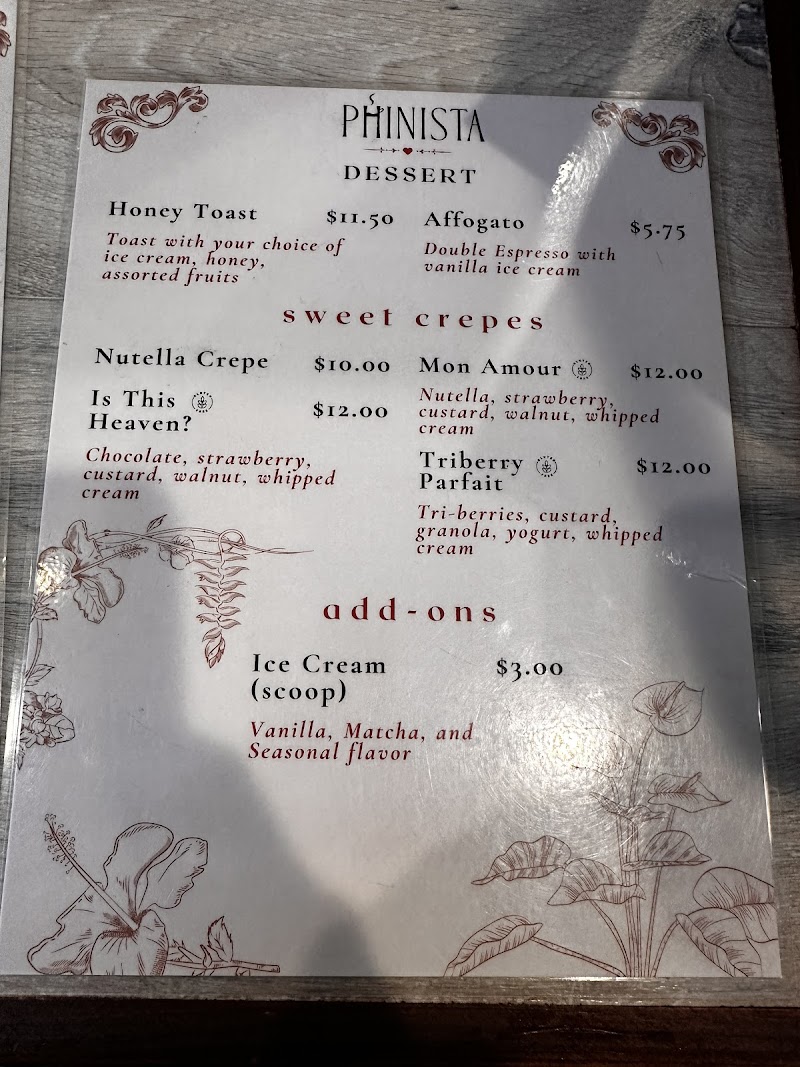 PHINISTA
DESSERT
Honey Toast $11.50
Toast with your choice of
ice cream, honey,
assorted fruits
Affogato $5.75
Double Espresso with
vanilla ice cream
sweet crepes
Nutella Crepe $10.00
Is This
Heaven? $12.00
Chocolate, strawberry,
custard, walnut, whipped
cream
Mon Amour $12.00
Nutella, strawberry,
custard, walnut, whipped
cream
Triberry $12.00
Parfait
Tri-berries, custard,
granola, yogurt, whipped
cream
add-ons
Ice Cream $3.00
(scoop)
Vanilla, Matcha, and
Seasonal flavor